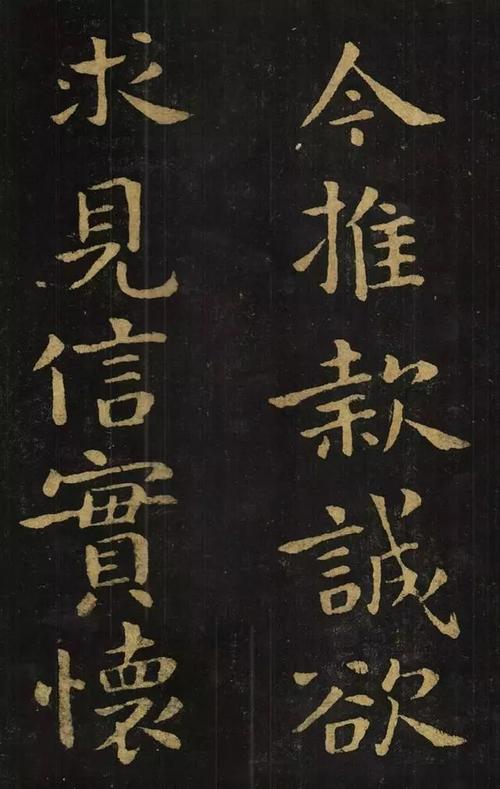 今推款誠欲
求見信實懷